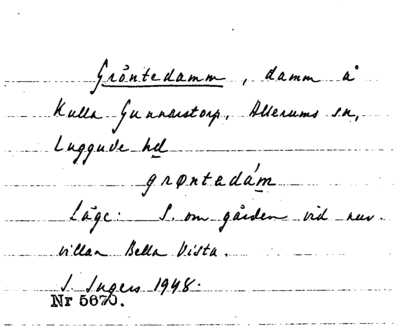 Gröntedamm, damm å
Kulla Gunnarstorp, Allerums sn,
Luggude hd
grøntedám
Läge: S. om gården vid nuv.
villan Bella Vista.
I. Ingers 1948.
Nr 5670.